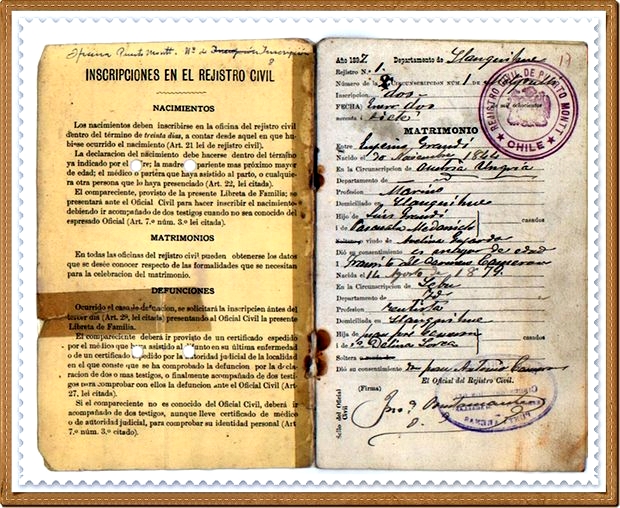 Oficina Puerto Montt. Nº de Inscripción
8
INSCRIPCIONES EN EL REJISTRO CIVIL
NACIMIENTOS
Los nacimientos deben inscribirse en la oficina del registro civil
dentro del término de treinta días, a contar desde aquel en que hu-
biese ocurrido el nacimiento (Art. 21 lei de rejistro civil).
La declaracion del nacimiento debe hacerse dentro del término
ya indicado por el padre; la madre o pariente mas próximo mayor
de edad; el médico o partera que haya asistido al parto, o cualquie-
ra otra persona que lo haya presenciado (Art. 22, lei citada).
El compareciente, provisto de la presente Libreta de Familia; se
presentará ante el Oficial Civil para hacer inscribir el nacimiento
debiendo ir acompañado de dos testigos cuando no sea conocido del
espresado Oficial (Art. 7.º núm. 3.º lei citada).
MATRIMONIOS
En todas las oficinas del rejistro civil pueden obtenerse los datos
que se desée conocer respecto de las formalidades que se necesitan
para la celebracion del matrimonio.
DEFUNCIONES
Ocurrido el caso de defuncion, se solicitará la inscripcion ántes del
tercer dia (Art. 29, lei citada) presentando al Oficial Civil la presente
Libreta de Familia.
El compareciente deberá ir provisto de un certificado espedido
por el médico que haya asistido al difunto en su última enfermedad
o de un certificado espedido por la autoridad judicial de la localidad
en el que conste que se ha comprobado la defuncion por la decla-
racion de dos o mas testigos, o finalmente acompañado de dos testi-
gos para comprobar con ellos la defuncion ante el Oficial Civil (Art.
27, lei citada).
Si el compareciente no es conocido del Oficial Civil, deberá ir
acompañado de dos testigos, aunque lleve certificado de médico
o de autoridad judicial, para comprobar su identidad personal (Art.
7.º núm. 3.º citado).
Año 1897 Departamento de Llanquihue 17
Rejistro N. 1.
Número de la 2 Circunscripcion núm. 1
Inscripcion dos
FECHA) Enero dos mil ochocientos
noventa i siete
MATRIMONIO
Entre Eujenio Grandi
Nacido el 20 Noviembre 1844
En la Circunscripcion de Austria Ungria
Departamento de
Profesion Marino
Domiciliado en Llanquihue
Hijo de Luis Grandi casados
i Pascuala
Soltero o viudo de
Dió su consentimiento es mayor de edad
i Transito del Carmen Cameron
Nacida el 16 Agosto de 1879.
En la Circunscripcion de Lebu
Departamento de id
Profesion rentista
Domiciliada en Llanquihue
Hija de Juan José Cameron casados
i Delina Lorca
Soltera
Dió su consentimiento Juan Antonio Cameron
El Oficial del Rejistro Civil.
(Firma)
Sello del Oficial Civil
REJISTRO CIVIL DE PUERTO MONTT
CHILE